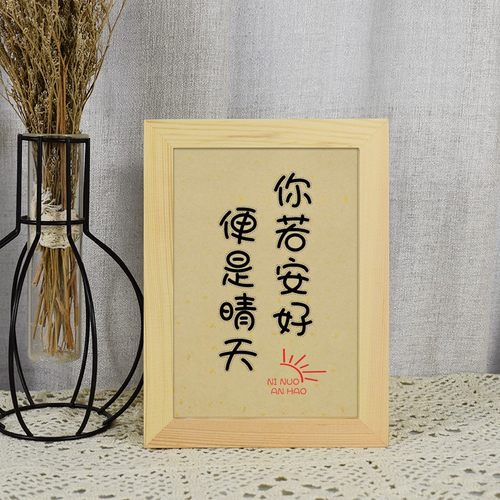 你若安好
便是晴天
NI NUO
AN HAO